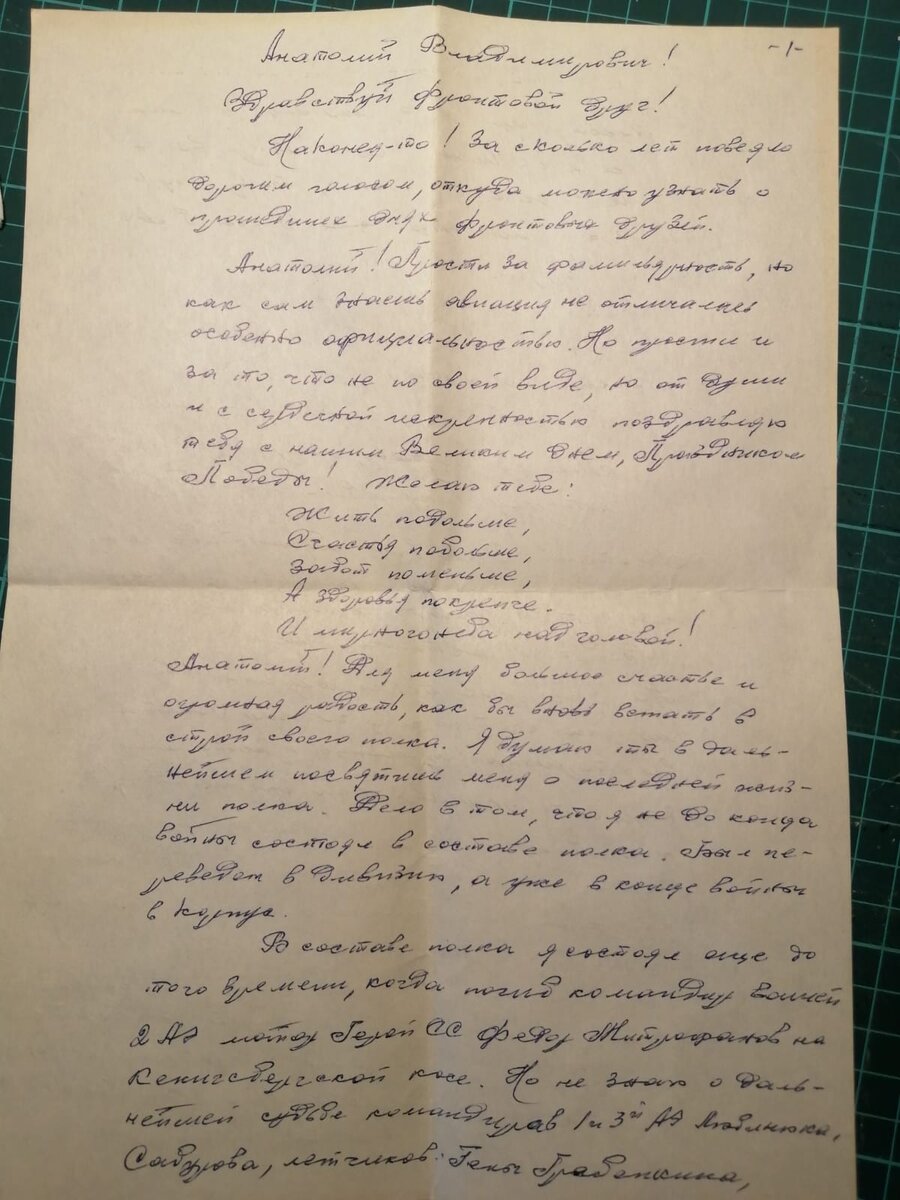 -1-
Анатолий Владимирович!
Здравствуй фронтовой друг!
Наконец-то! За сколько лет повеяло
дорогим голосом, откуда можно узнать о
прошедших днях фронтовых друзей.
Анатолий! Прости за фамильярность, но
как сам знаешь авиация не отличались
особенно официальностью. Но прости и
за то, что не по своей виде, но от души
и с сердечной искренностью поздравляю
тебя с нашим Великим Днем, Праздником
Победы! Желаю тебе:
Жить подольше,
Счастья побольше,
Забот поменьше,
А здоровья покрепче.
И мирного неба над головой!
Анатолий! Для меня большое счастье и
огромная радость, как бы вновь встать в
строй своего полка. Я думаю ты в даль-
нейшем посвятишь меня о последней жиз-
ни полка. Дело в том, что я не до конца
войны состоял в составе полка. Был пе-
реведен в Дивизию, а уже в конце войны
в Корпус.
В составе полка я состоял еще до
того времени, когда погиб командир вашей
2 АЭ Герой СС Федор Митрофанов на
Кенигсбергской косе. Но не знаю о даль-
нейшей судьбе командиров 1 и 3й АЭ
Сабурова, летчиков: Гены